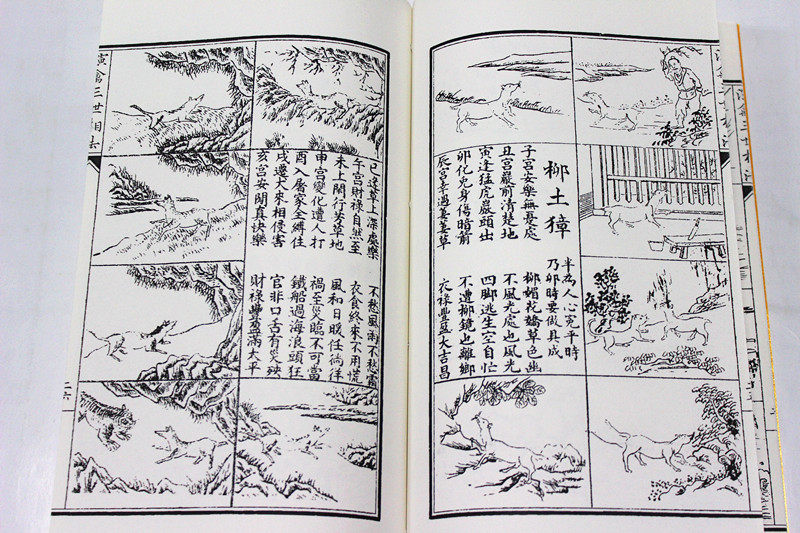 柳土獐
半為人心寬平時
乃卯時要做具成
子宮安樂無憂處
丑宮巖前清楚地
寅逢猛虎巖頭出
卯化兔身傷暗前
辰宮幸遇萋萋草
柳媚花嬌草色幽
不風光處也風光
四脚逃生空自忙
不遭柳鏡也離鄉
衣祿豐盈大吉昌
巳逢草上深處樂
午宮財祿自然至
未上閑行芳草地
申宮變化遭人打
酉入屠家全縛住
戌遷犬來相侵害
亥宮安閒真快樂
不愁風雨不愁霜
衣食終來不用慌
風和日暖任徜徉
禍至災臨不可當
鐵船過海浪頭狂
官非口舌有災殃
財祿豐盈滿太平
演禽三世相法
二六